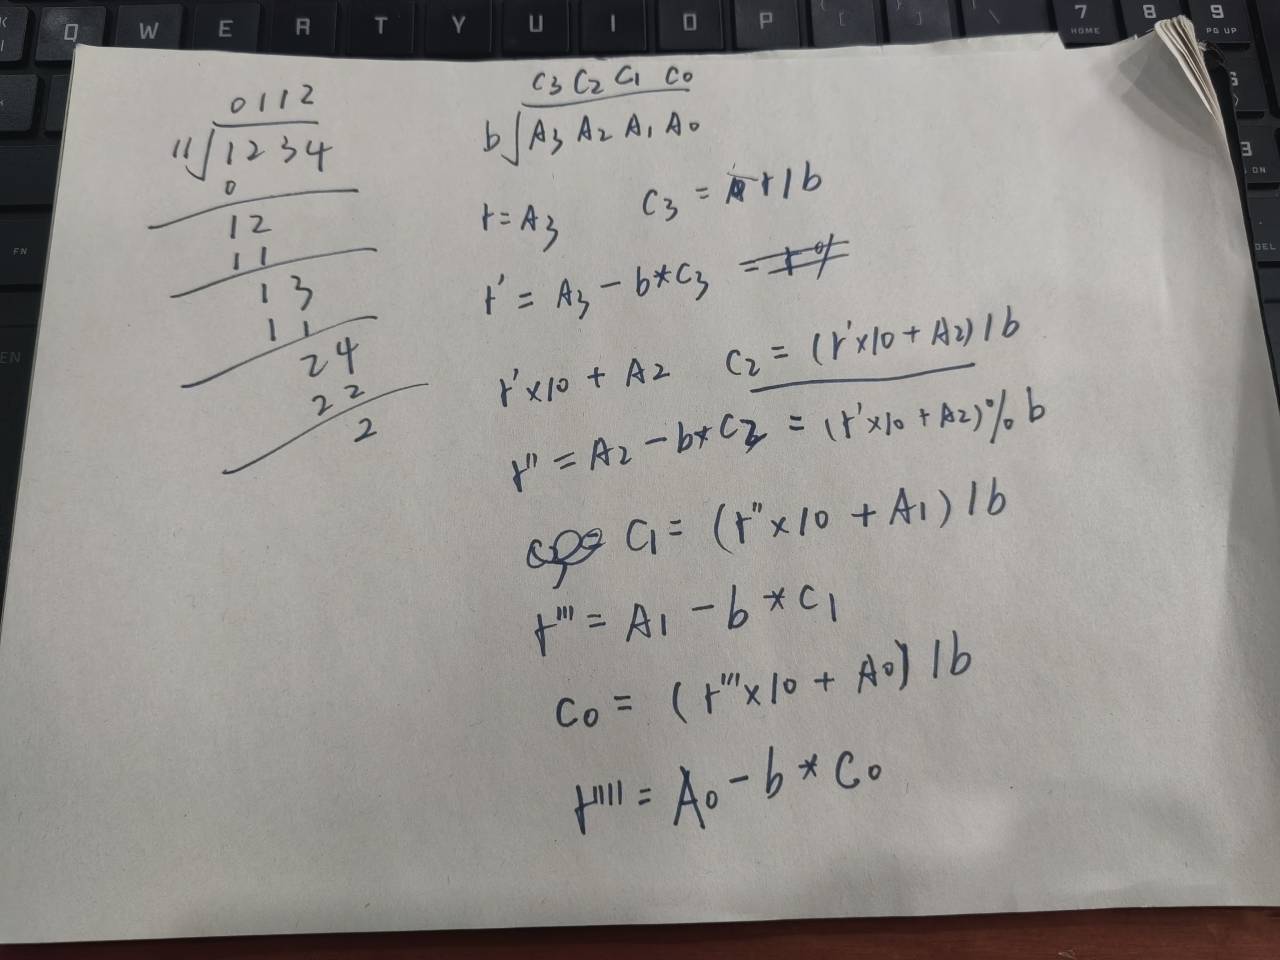 Q W E R T Y U I O P [ ] \ 7 8 9
HOME PG UP
FN
0112
11 1234
0
12
11
13
11
24
22
2
C3 C2 C1 C0
b A3 A2 A1 A0
r = A3 C3 = r / b
r' = A3 - b*C3
r'×10 + A2 C2 = (r'×10 + A2) / b
r'' = A2 - b*C2 = (r'×10 + A2) % b
C1 = (r''×10 + A1) / b
r''' = A1 - b*C1
C0 = (r'''×10 + A0) / b
r'''' = A0 - b*C0